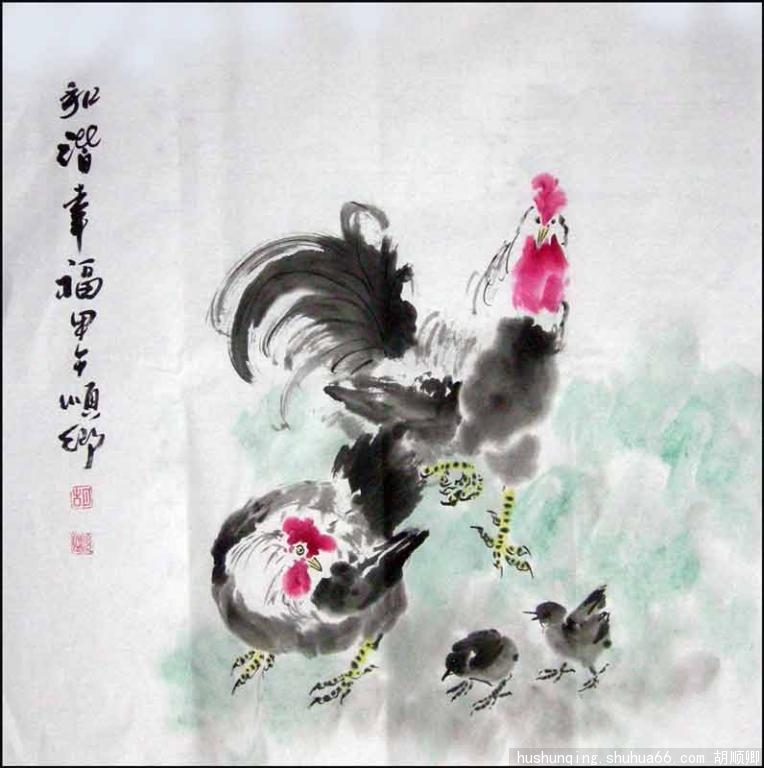 和谐幸福甲午顺卿
hushunqing.shuhua66.com 胡顺卿